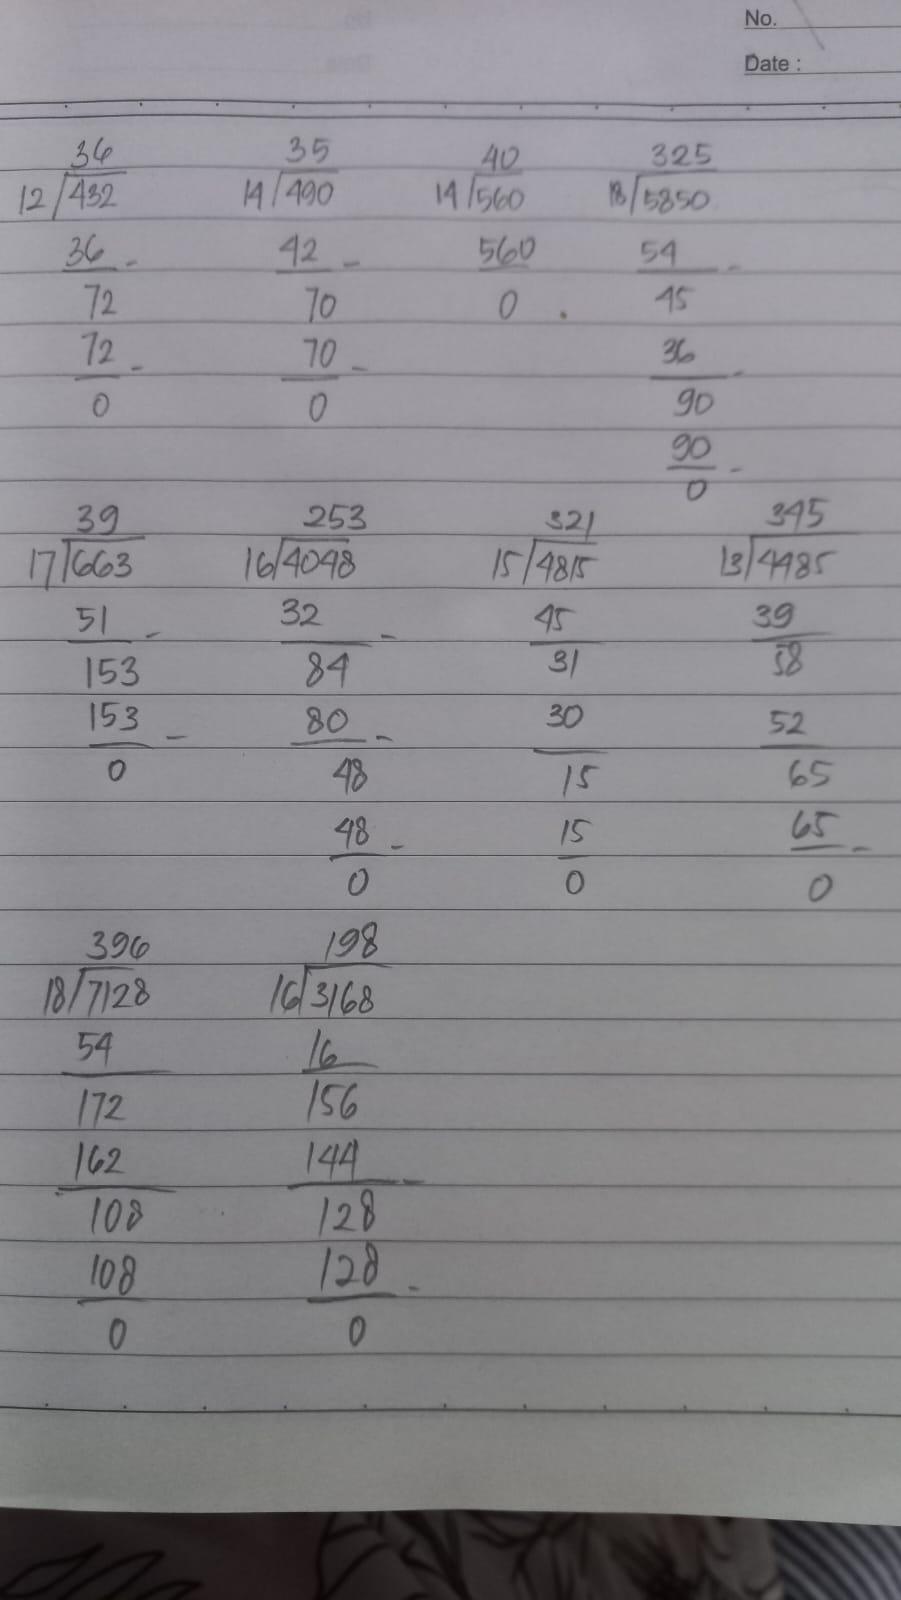 No.
Date :
36 35 40 325
12/432 14/490 14/560 18/5850
36 - 42 - 560 54 -
72 70 0 . 45
72 - 70 - 36 -
0 0 90
90 -
0
39 253 321 345
17/663 16/4048 15/4815 13/4485
51 - 32 - 45 39
153 84 31 58
153 - 80 - 30 52
0 48 15 65
48 - 15 65 -
0 0 0
396 198
18/7128 16/3168
54 16
172 156
162 144 -
108 128
108 128 -
0 0